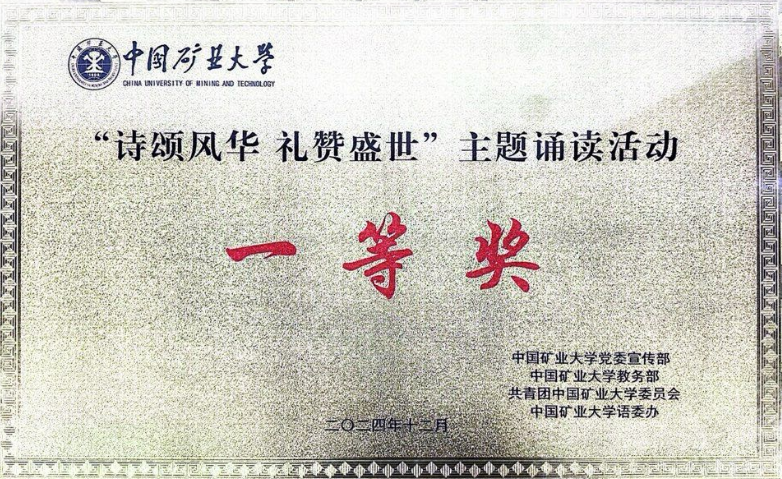 中国矿业大学
CHINA UNIVERSITY OF MINING AND TECHNOLOGY
“诗颂风华 礼赞盛世”主题诵读活动
一等奖
中国矿业大学党委宣传部
中国矿业大学教务部
共青团中国矿业大学委员会
中国矿业大学语委办
二〇二四年十二月